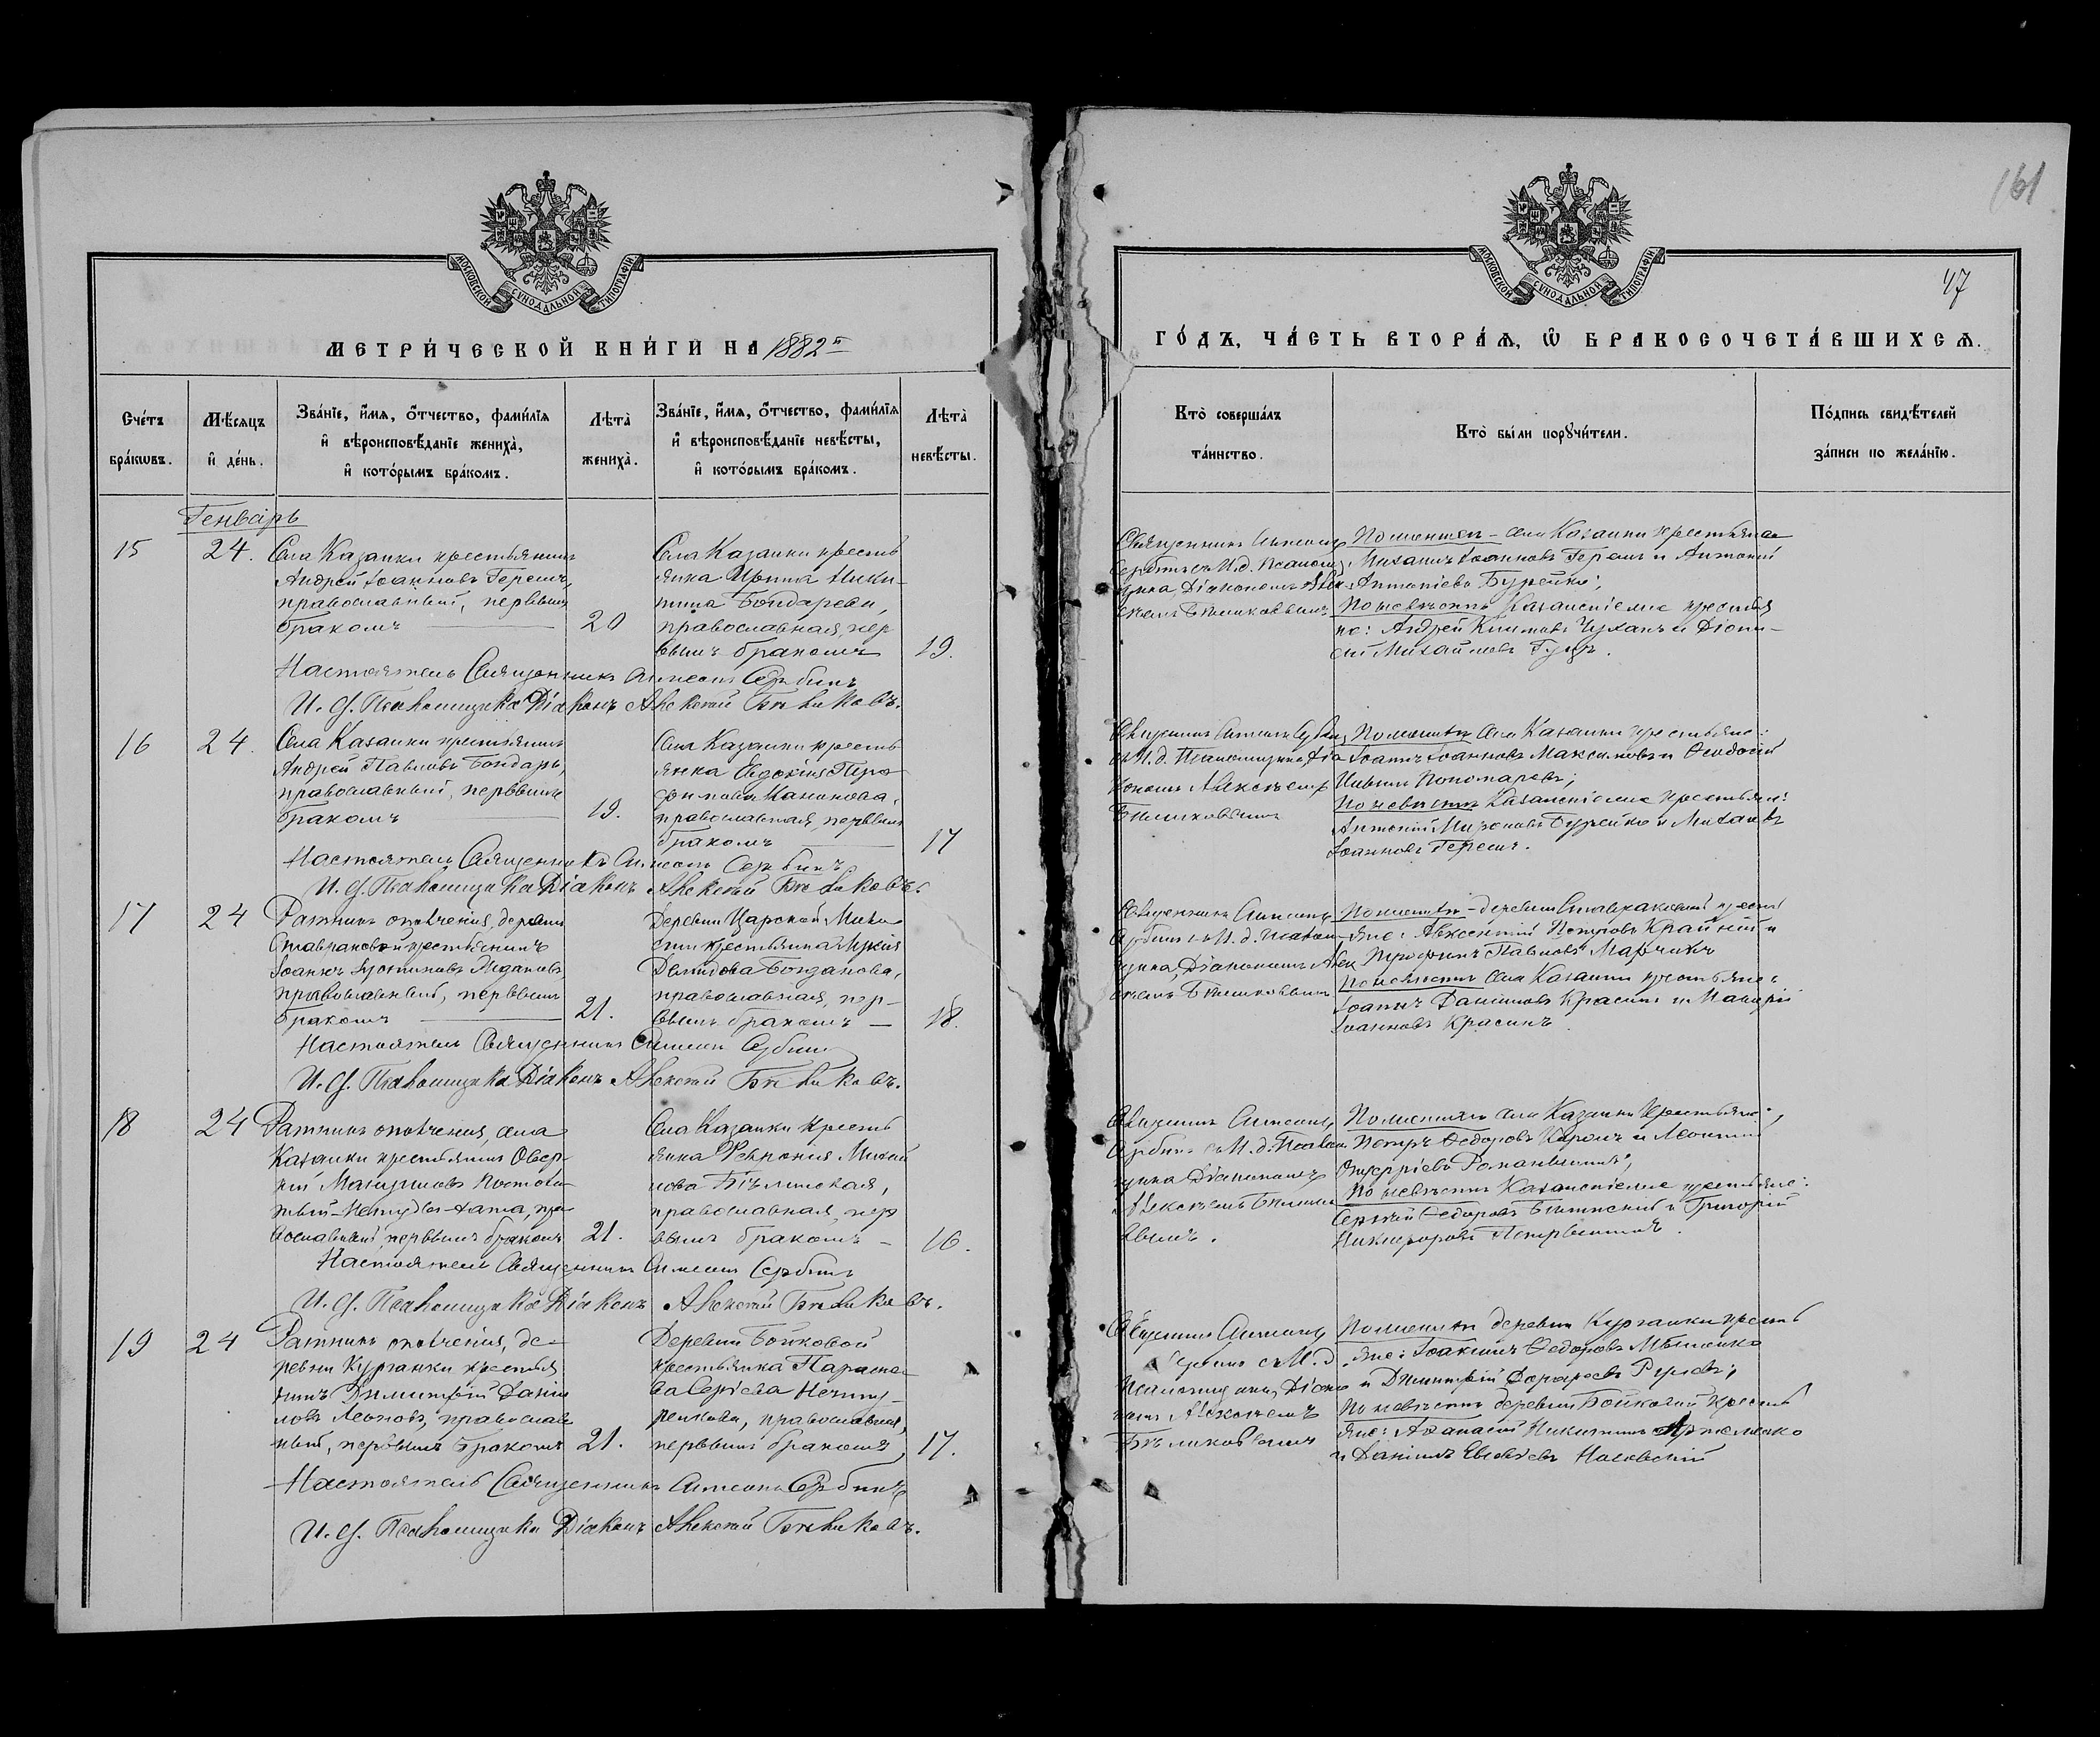 161
МОСКОВСКОЙ СѴНОДАЛЬНОЙ ТИПОГРАФІИ
МОСКОВСКОЙ СѴНОДАЛЬНОЙ ТИПОГРАФІИ
47
МЕТРИ́ЧЕСКОЙ КНИ́ГИ НА 1882й
ГО́ДЪ, ЧА́СТЬ ВТОРА́Ѧ, Ѽ БРАКОСОЧЕТА́ВШИХСѦ.
Сче́тъ бра́кѡвъ.
Мѣ́сяцъ и҆ де́нь.
Зва́нїе, и҆́мѧ, ѻ҆́тчество, фами́лїѧ
и҆ вѣроисповѣ́данїе жениха̀,
и҆ кото́рымъ бра́комъ.
Лѣта̀ жениха̀.
Зва́нїе, и҆́мѧ, ѻ҆́тчество, фами́лїѧ
и҆ вѣроисповѣ́данїе невѣ́сты,
и҆ кото́рымъ бра́комъ.
Лѣта̀ невѣ́сты.
Кто̀ соверша́лъ та́инство.
Кто̀ бы́ли порꙋчи́тели.
По́дпись свидѣ́телей
за́писи по жела́нїю.
Генварь
15
24.
Села Казанки крестьянинъ
Андрей Іоанновъ
православный, первымъ
бракомъ
20
Села Казанки кресть
янка Ирина Ники-
тина Бондарева,
православная, пер
вымъ бракомъ
19.
Священникъ Симеонъ
Сербинъ съ И. д. Псалом
щика, Діакономъ Алек
сѣемъ Бѣликовымъ
По женихѣ - села Казанки крестьяне
Михаилъ Іоанновъ и Антоній
Антоніевъ Бурейко;
По невѣстѣ Казанскіе же крестья
не: Андрей Климовъ и Діони-
сій Михайловъ
Настоятель Священникъ Симеонъ Сербинъ
И. д. Псаломщика Діаконъ Алексѣй Бѣликовъ.
16
24.
Села Казанки крестьянинъ
Андрей Павловъ Бондарь,
православный, первымъ
бракомъ
19.
Села Казанки кресть
янка Евдокія
православная, первымъ
бракомъ
17
Священникъ Симеонъ Сербинъ
съ И. д. Псаломщика Діа
кономъ Алексѣемъ
Бѣликовымъ
По женихѣ села Казанки крестьяне:
Іоаннъ Іоанновъ Максимовъ и Ѳеодосій
Пономаревъ;
По невѣстѣ Казанскіе же крестьяне:
Антоній Мироновъ Бурейко и Михаилъ
Іоанновъ
Настоятель Священникъ Симеонъ Сербинъ
И. д. Псаломщика Діаконъ Алексѣй Бѣликовъ.
17
24
Ратникъ ополченія, деревни
крестьянинъ
Іоаннъ
православный, первымъ
бракомъ
21.
Деревни Царской
крестьянка
Демидова Богданова,
православная, пер-
вымъ бракомъ
18.
Священникъ Симеонъ
Сербинъ съ И. д. Псалом
щика, Діакономъ Алек
сѣемъ Бѣликовымъ
По женихѣ - деревни кресть
яне: Авксентій Крайній и
Трофимъ Павловъ
По невѣстѣ села Казанки крестьяне:
Іоаннъ Даниловъ Красинъ и
Іоанновъ Красинъ
Настоятель Священникъ Симеонъ Сербинъ
И. д. Псаломщика Діаконъ Алексѣй Бѣликовъ.
18
24
Ратникъ ополченія, села
Казанки крестьянинъ
пра
вославный, первымъ бракомъ
21.
Села Казанки кресть
янка Февронія Михай
лова
православная, пер
вымъ бракомъ
16.
Священникъ Симеонъ
Сербинъ съ И. д. Псалом
щика Діакономъ
Алексѣемъ Бѣлико
вымъ.
По женихѣ села Казанки крестьяне:
Петръ Ѳедоровъ и Леонтій
По невѣстѣ Казанскіе же крестьяне:
Сергѣй Ѳедоровъ и Григорій
Никифоровъ
Настоятель Священникъ Симеонъ Сербинъ
И. д. Псаломщика Діаконъ Алексѣй Бѣликовъ.
19
24
Ратникъ ополченія, де-
ревни Курганки крестья
нинъ Димитрій Дани
ловъ Леоновъ, православ
ный, первымъ бракомъ
21.
Деревни Бойковой
крестьянка Параске
ва Сергіева
православная,
первымъ бракомъ
17.
Священникъ Симеонъ
Сербинъ съ И. д.
Псаломщика, Діако
номъ Алексѣемъ
Бѣликовымъ
По женихѣ деревни Курганки кресть
яне: Іоакимъ Ѳедоровъ
и Димитрій
По невѣстѣ деревни Бойковой кресть
яне: Аѳанасій Никитинъ
и Даніилъ
Настоятель Священникъ Симеонъ Сербинъ
И. д. Псаломщика Діаконъ Алексѣй Бѣликовъ.